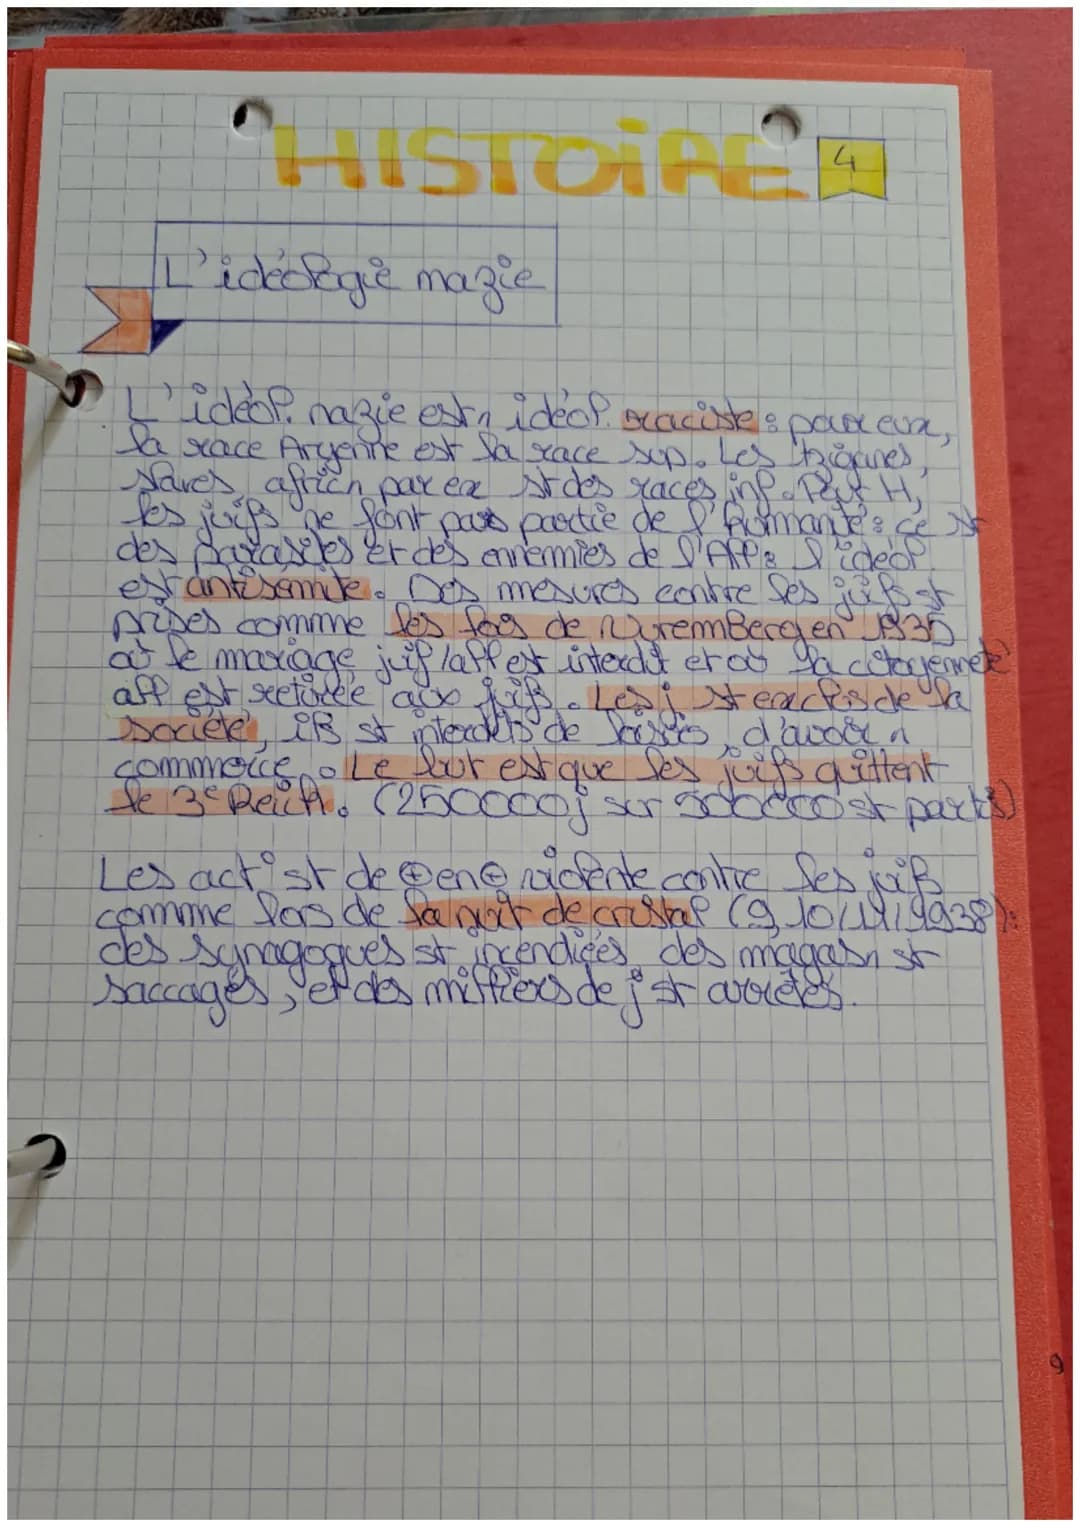 HISTOiRE
4
L'idéologie nazie
L'idéol. nazie est n idéol. raciste : pour eux,
la race Aryenne est la race sup. Les tziganes,
slaves, africn par ex st des races inf. Pour H,
les juifs ne font pas partie de l'humanité : ce st
des parasites et des ennemies de l'All : l'idéol.
est antisemite. Des mesures contre les juifs st
prises comme les lois de NuremBerg en 1935
où le mariage juif/all est interdit et où la citoyenneté
all est retirée aux juifs. Les j st exclus de la
société, ils st interdits de loisirs, d'avoir n
commerce. Le but est que les juifs quittent
le 3e Reich. (250000 j sur 500000 st partis)
Les act° st de ⊕ en ⊕ violente contre les juifs
comme lors de la nuit de cristal (9,10/11/1938) :
des synagogues st incendiées, des magasn st
saccagés, et des milliers de j st arrêtés.